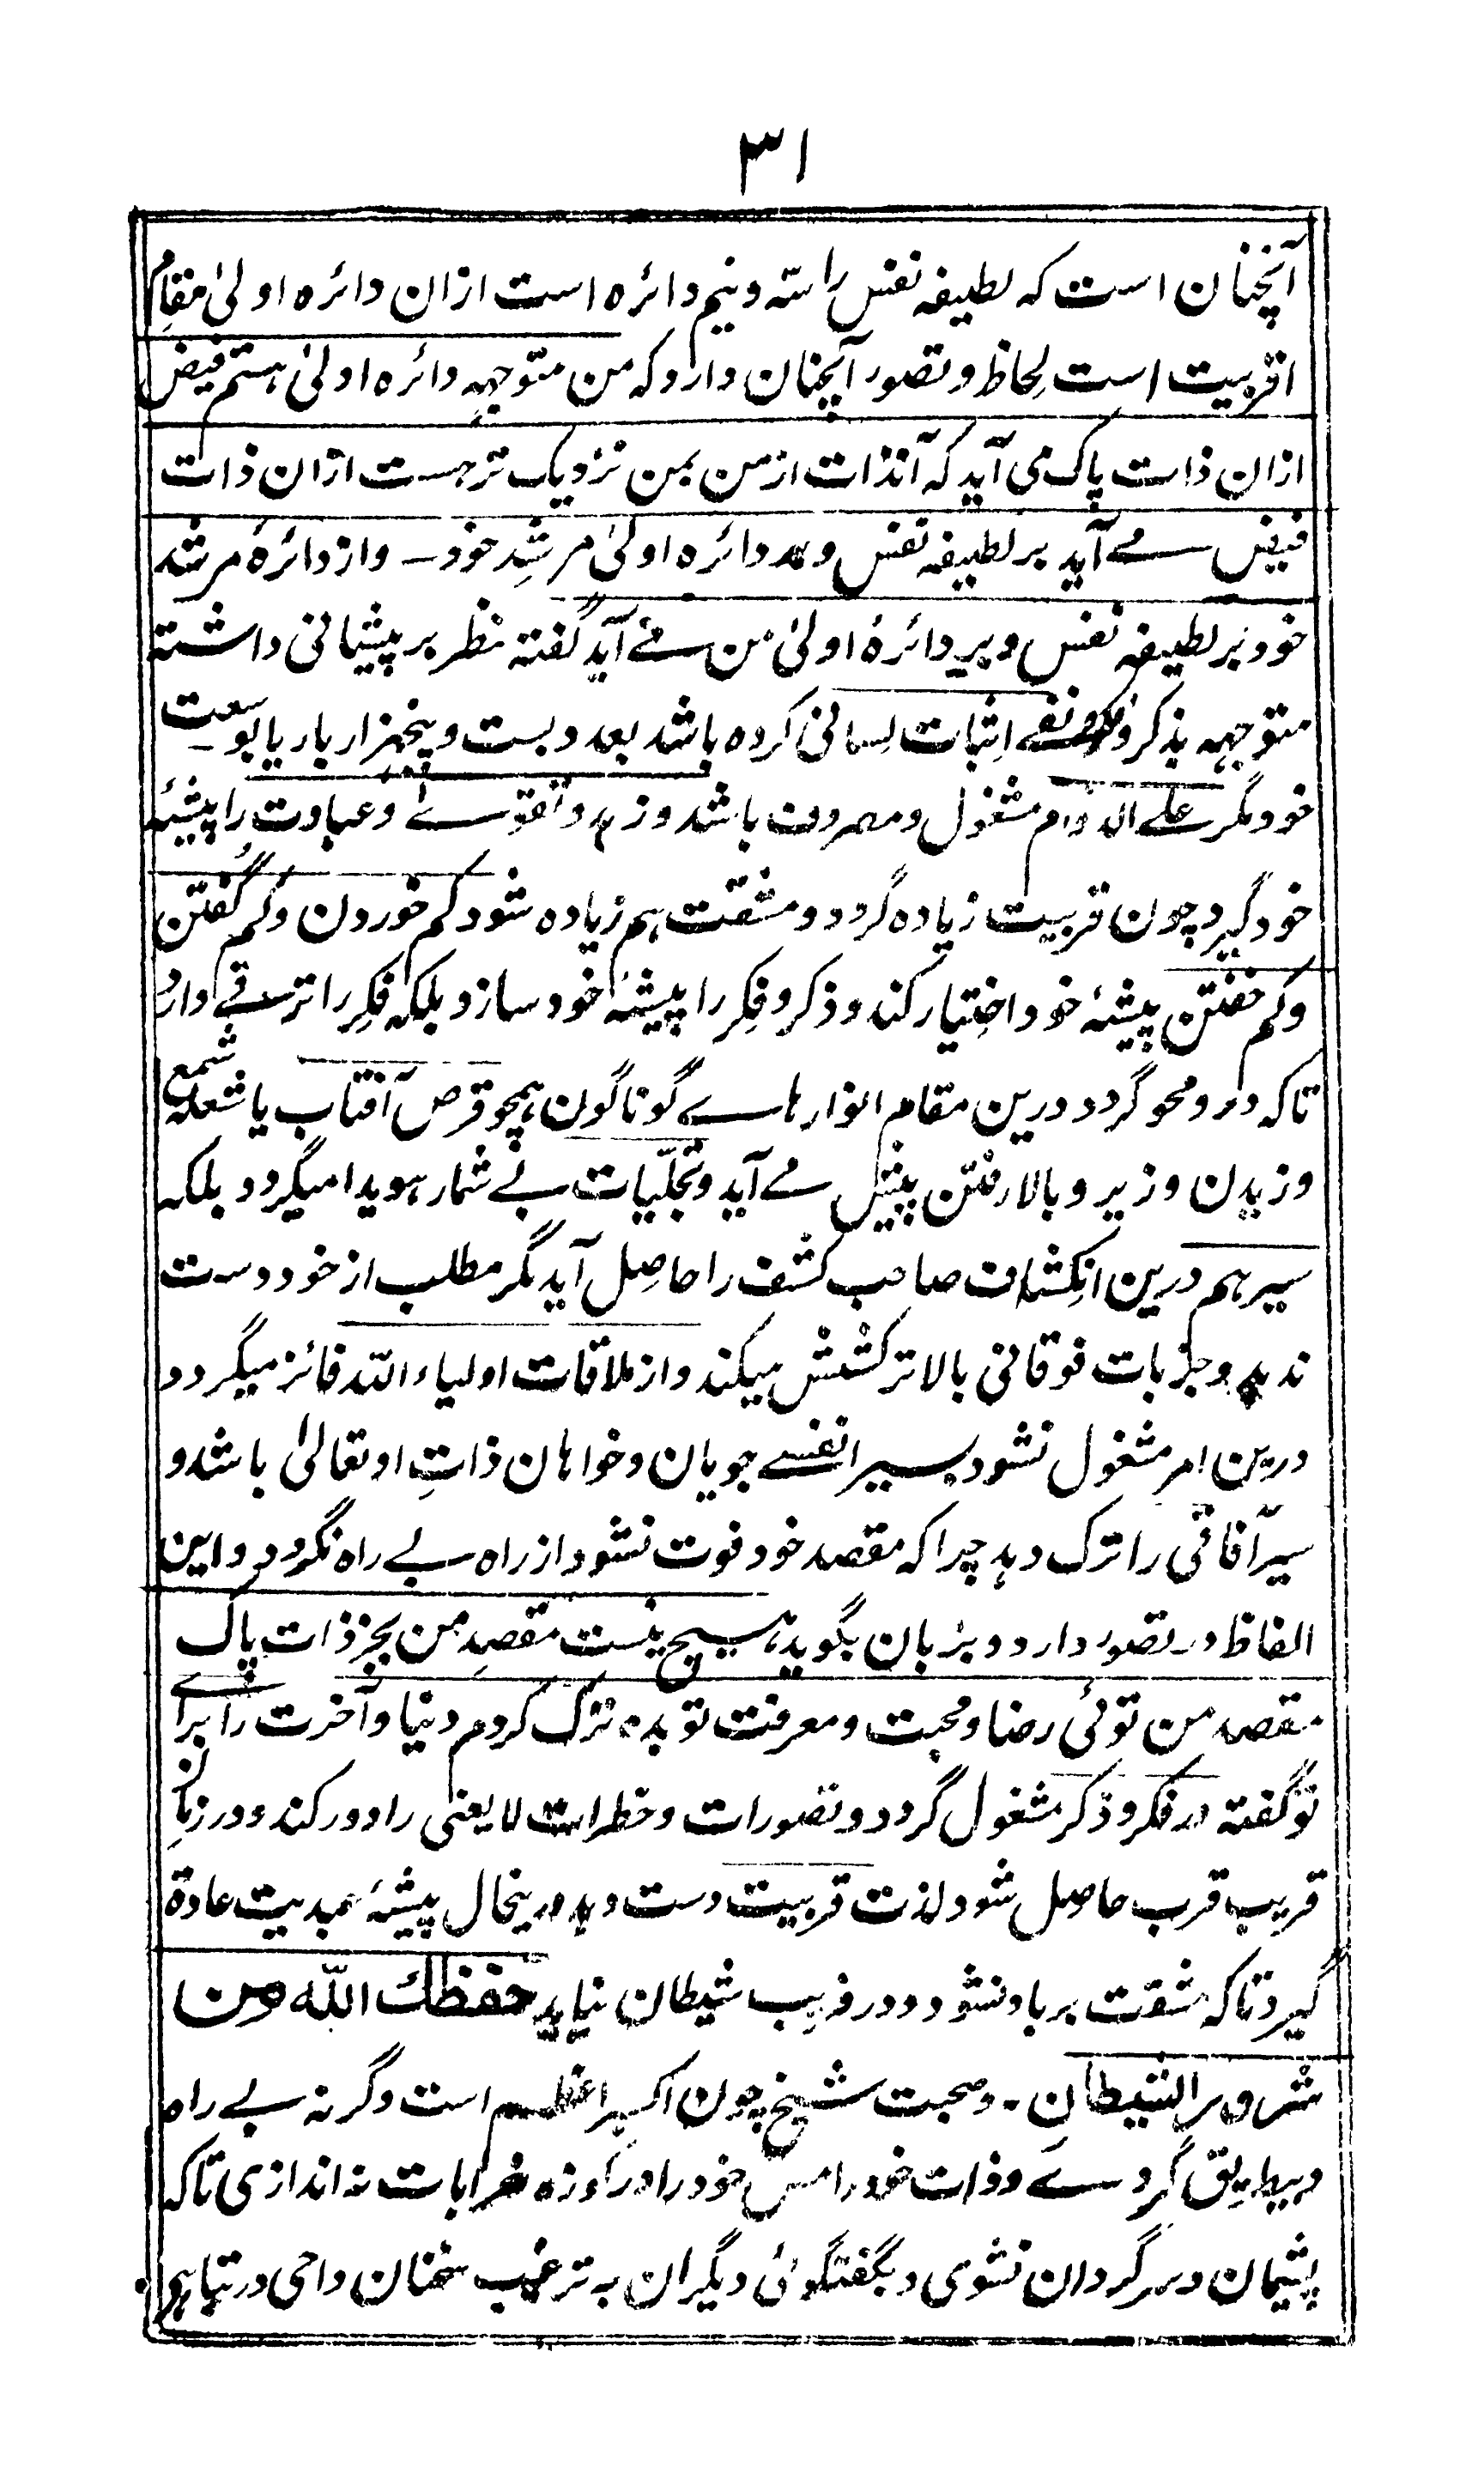 ۳۱
آنچنان است که لطیفه نفس را سه و نیم دائره است ازان دائره اولیٰ مقامِ
اقربیت است لحاظ و تصور آنچنان دارد که من متوجهه دائره اولیٰ ہستم فیض
ازان ذات پاک می آید که آنذات از من بمن نزدیک تر هست ازان ذات
فیض مے آید بر لطیفه نفس و بر دائره اولیٰ مرشِد خود ـ و از دائرۂ مرشد
خود بر لطیفه نفس و بر دائرهٔ اولیٰ من مے آید گفته نظر بر پیشانی داشته
متوجهه بذکر و نفے اثبات لسانی کرده باشد بعد و بست و پنجهزار بار یا بوسعت
خود مگر علے الدوام مشغول و مصروف باشد و زہد و تقویٰ و عبادت را پیشۂ
خود گیرد چون قربیت زیاده گردد و مشقت ہم زیاده شود کم خوردن و کم گفتن
و کم خفتن پیشۂ خود اختیار کند و ذکر و فکِر را پیشۂ خود سازد بلکہ فکِر را ترقے دارد
تاکہ درو محو گردد درین مقام انوارهاے گوناگون ہمچو قرص آفتاب یا شعلہ شمع
وزیدن و زیر و بالا رفتن پیش مے آید و تجلّیات بے شمار ہویدا میگردد بلکہ
سیر ہم درین انکِشاف صاحب کشف را حاصِل آید مگر مطلب از خود دست
ندہد و جذبات فوقانی بالاتر کشش میکند و از ملاقات اولیاء اللہ فائز میگردد
درین امر مشغول نشود بسیر انفسے جویان و خواهان ذاتِ او تعالیٰ باشد و
سیر آفاقی را ترک دہد چرا کہ مقصد خود فوت نشود از راه بے راه نگردد و این
الفاظ در تصور دارد و بزبان بگوید ہیچ نیست مقصدِ من بجز ذات پاک
مقصد من توئی رضا و محبت و معرفت تو بده ترک کردم دنیا و آخرت را براے
تو گفته در فکر و ذکر مشغول گردد و تصورات و خطرات لا یعنی را دور کند و در زمانِ
قریب قرب حاصل شود لذت قربیت دست دہد درینحال پیشۂ عبدیت عادة
گیرد تاکہ مشقت برباد نشود و در فریب شیطان نیاید حفظك الله من
شرور الشیطان ـ و صحبت شیخ چون اکسیر اعظم است وگرنہ بے راه
و بیطریق گردے و ذات خود را مس خود را در کوزه خرابات نہ اندازی تاکہ
پشیمان و سرگردان نشوی و بگفتگوئی دیگران بہ ترغیب سخنان واحی در تباہی